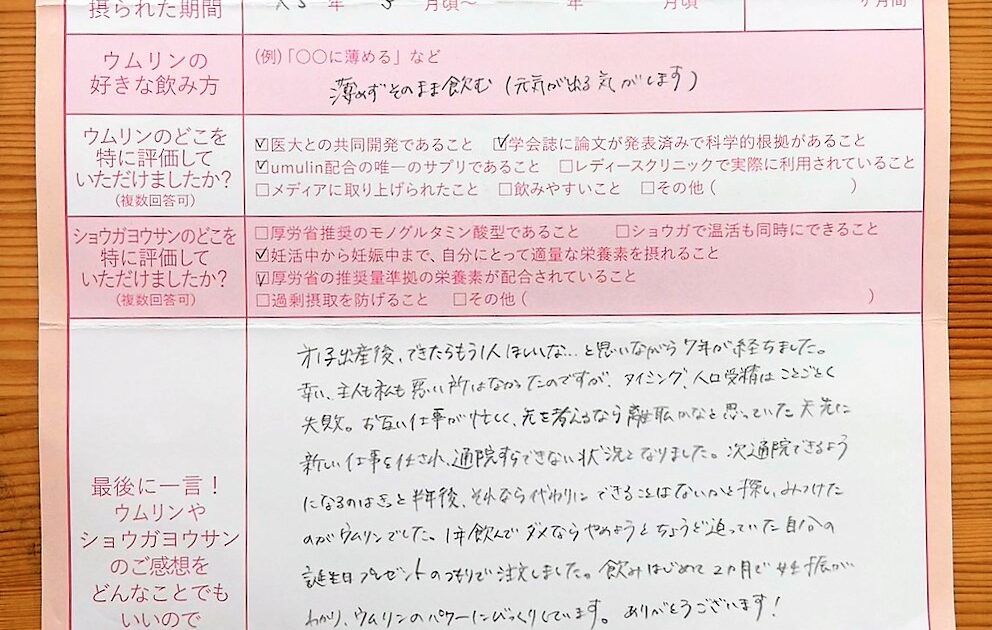 摂られた期間
年 月頃〜 年 月頃
ヶ月間
ウムリンの
好きな飲み方
(例)「〇〇に薄める」など
薄めずそのまま飲む (元気が出る気がします)
ウムリンのどこを
特に評価して
いただけましたか?
(複数回答可)
☑医大との共同開発であること ☑学会誌に論文が発表済みで科学的根拠があること
☑umulin配合の唯一のサプリであること □レディースクリニックで実際に利用されていること
□メディアに取り上げられたこと □飲みやすいこと □その他 ( )
ショウガヨウサンのどこを
特に評価して
いただけましたか?
(複数回答可)
□厚労省推奨のモノグルタミン酸型であること □ショウガで温活も同時にできること
☑妊活中から妊娠中まで、自分にとって適量な栄養素を摂れること
☑厚労省の推奨量準拠の栄養素が配合されていること
□過剰摂取を防げること □その他 ( )
最後に一言!
ウムリンや
ショウガヨウサン
のご感想を
どんなことでも
いいので
才1子出産後、できたらもう1人ほしいな…と思いながら7年が経ちました。
幸い、主人も私も悪い所はなかったのですが、タイミング、人口受精はことごとく
失敗。お互い仕事が忙しく、先を考えるなら離職かなと思っていた矢先に
新しい仕事を任され、通院すらできない状況となりました。次通院できるよう
になるのはきっと半年後、それなら代わりにできることはないかと探し、みつけた
のがウムリンでした。1本飲んでダメならやめようとちょうど迫っていた自分の
誕生日プレゼントのつもりで注文しました。飲みはじめて2ヵ月で妊娠が
わかり、ウムリンのパワーにびっくりしています。ありがとうございます!